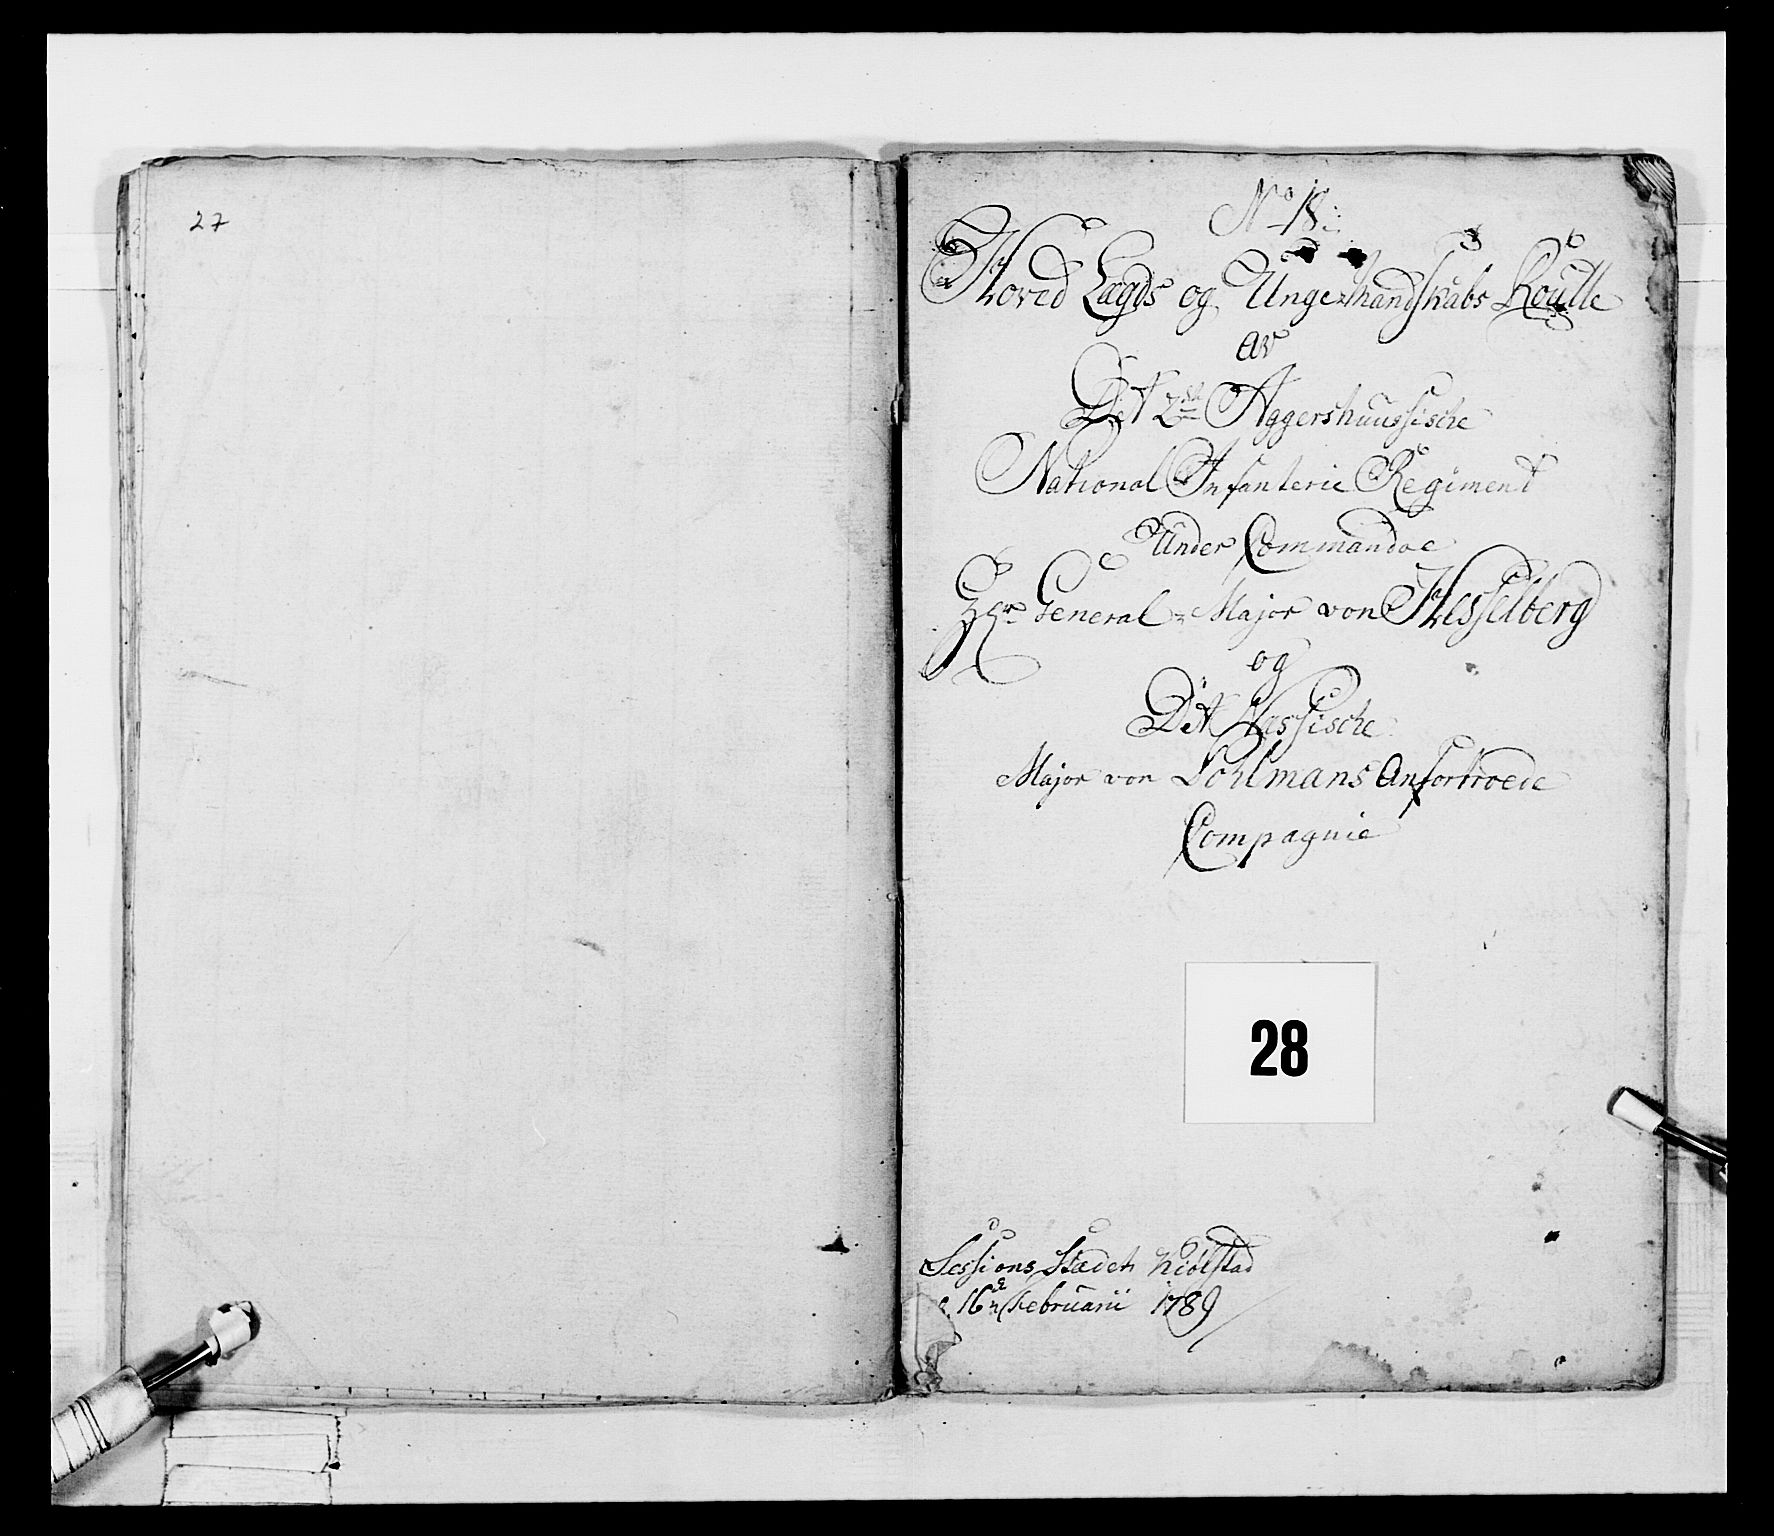 27
No 18:
Hoved Lægds og Unge Mandskabs Roulle
av
Det 2det Aggershuussische
National Infanterie Regiment
Under Commandoe
Hr General-Major von Hesselberg
og
Det Nassische
Major von Pohlmans Anfortroede
Compagnie
28
Sessions Stædet Kiölstad
d 16n Februarii 1789